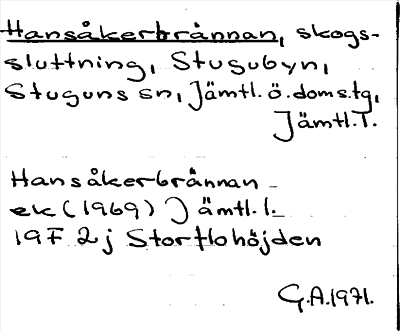 Hansåkerbrännan, skogs-
sluttning, Stugubyn,
Stuguns sn, Jämtl. ö. doms.tg,
Jämtl. l.
Hansåkerbrännan
ek (1969) Jämtl. l.
19F 2j Storflohöjden
G.A. 1971.